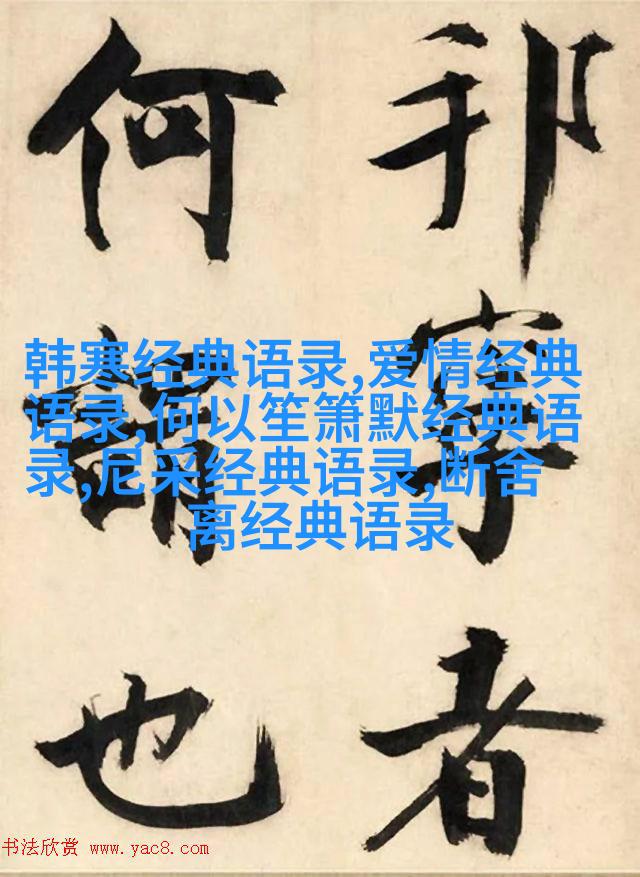 者
何謂也
韩寒经典语录,爱情经典
语录,何以笙箫默经典语
录,尼采经典语录,断舍
离经典语录
书法欣赏 www.yac8.com